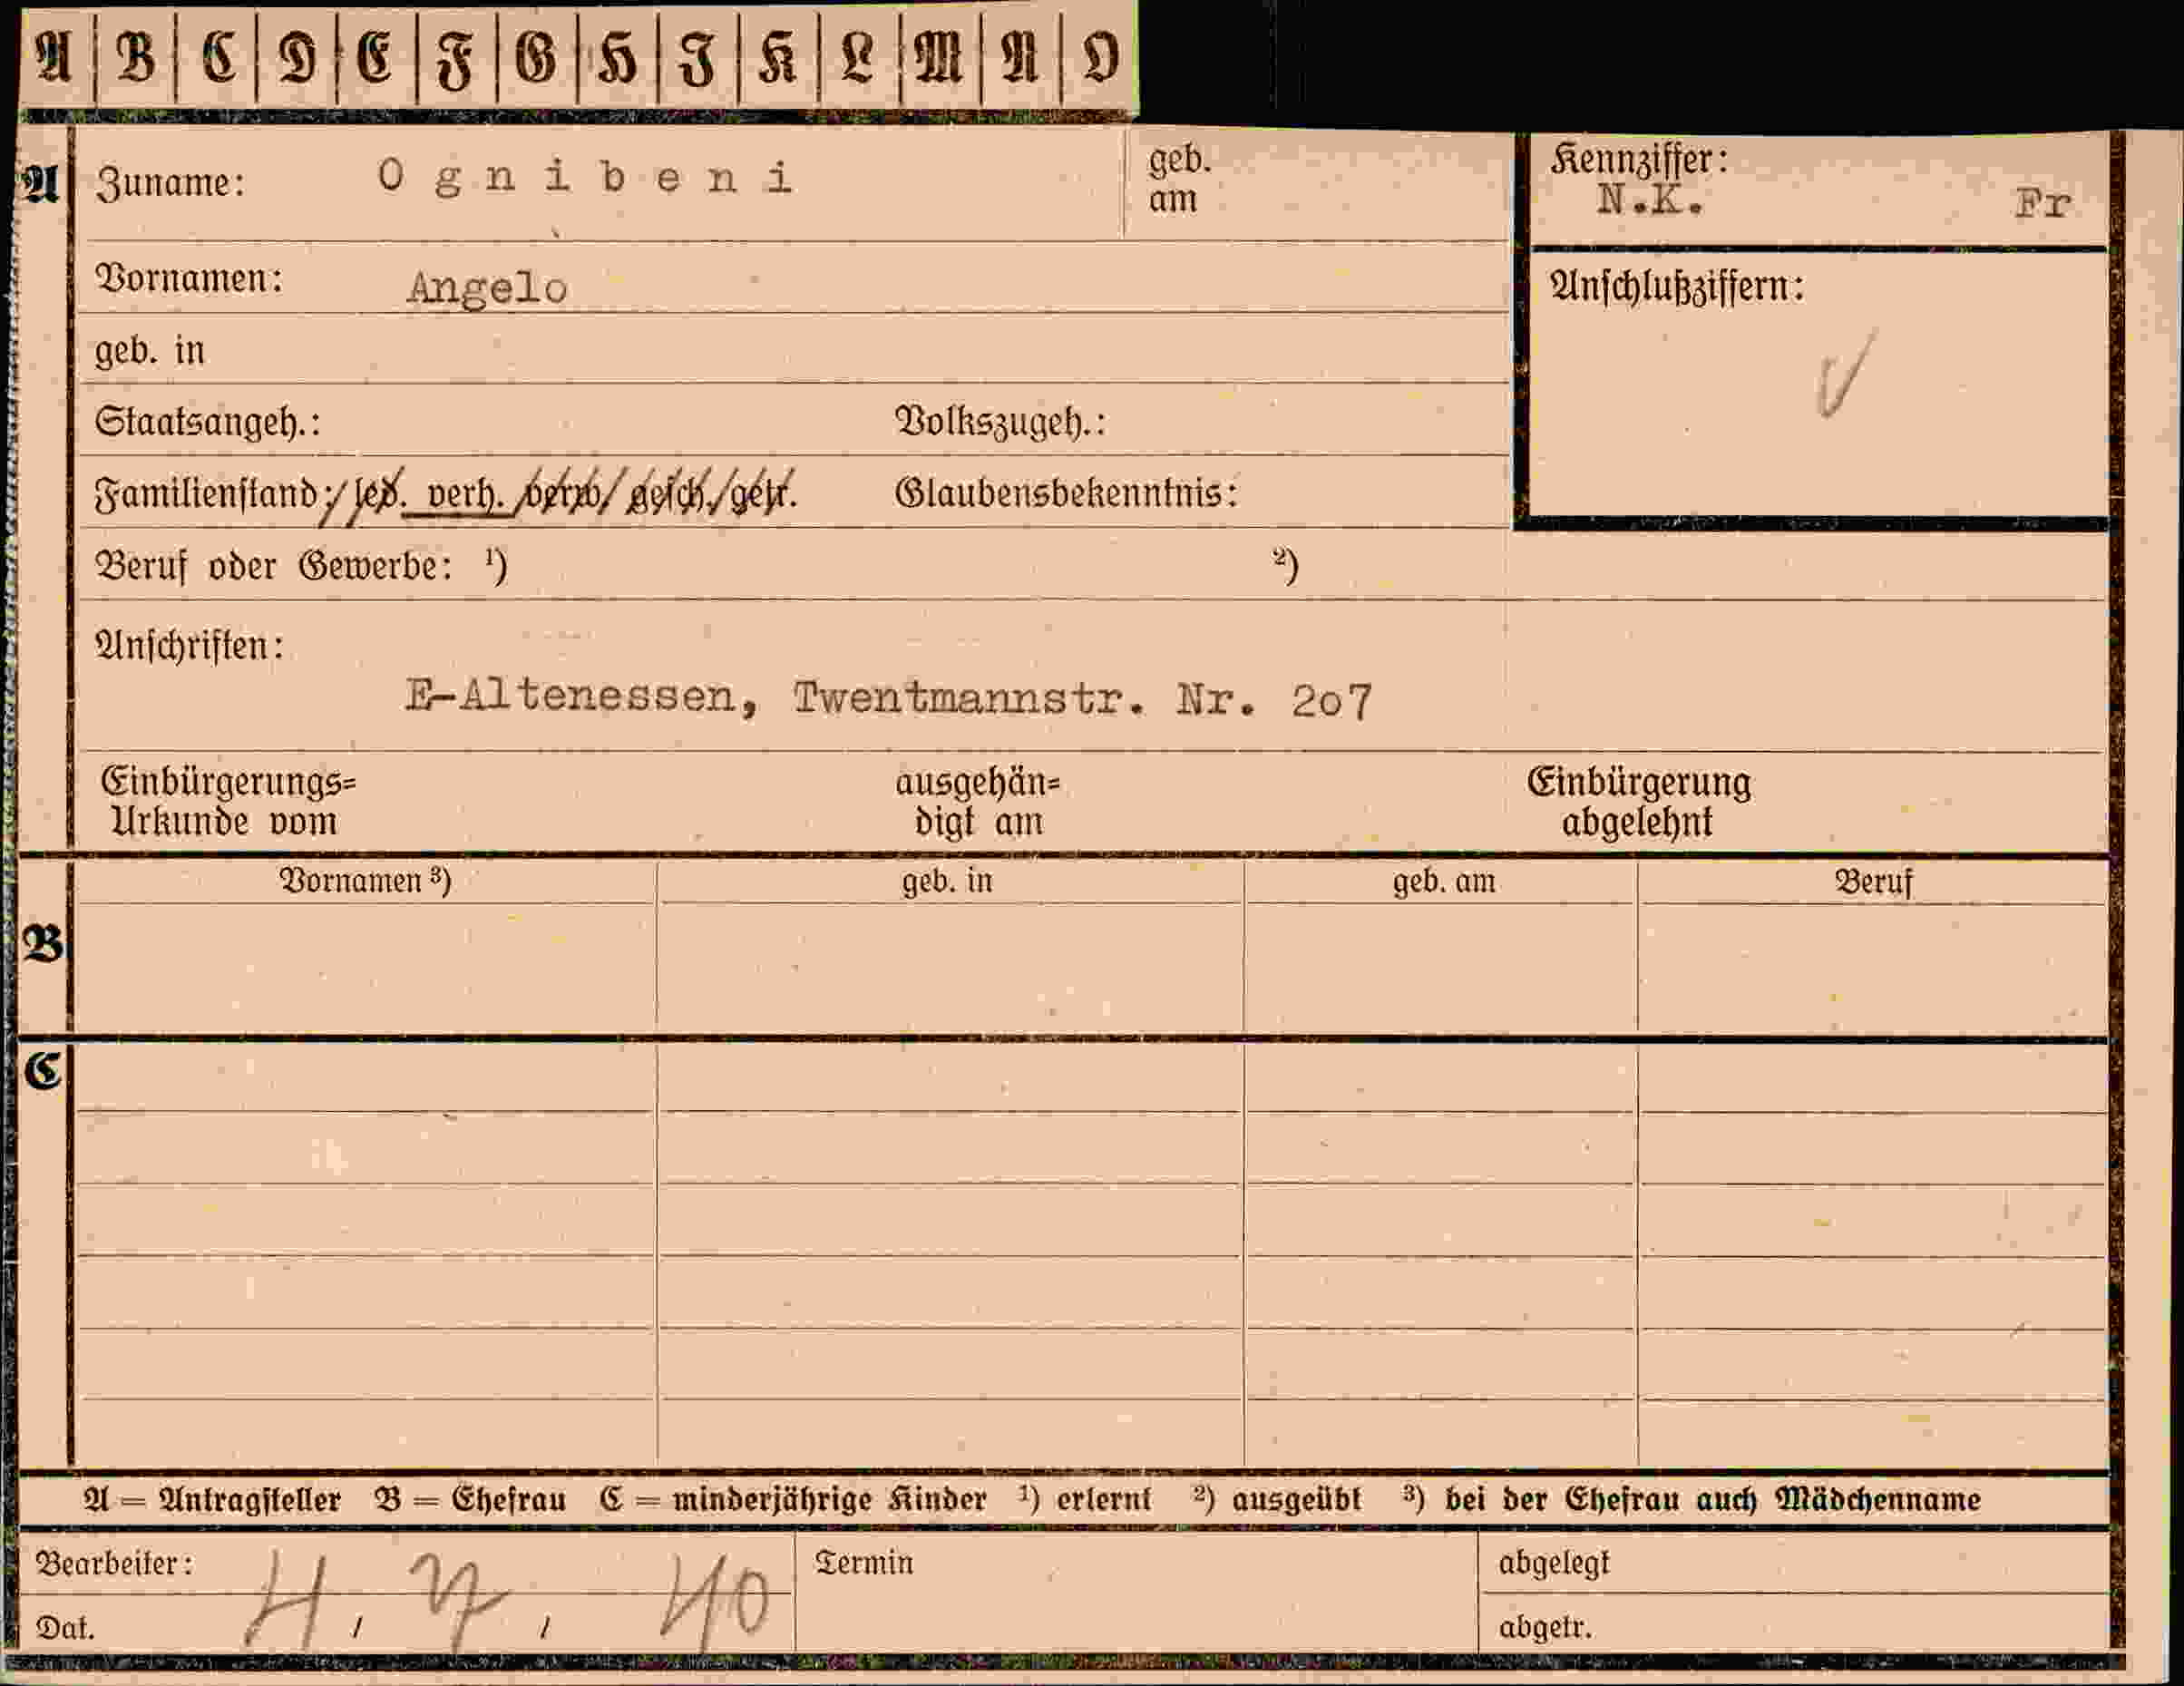 A B C D E F G H I K L M N O
A Zuname: Ognibeni geb. am
Kennziffer:
N.K. Fr
Vornamen: Angelo
Anschlußziffern:
geb. in
Staatsangeh.: Volkszugeh.:
Familienstand: led. verh. verw. gesch. getr. Glaubensbekenntnis:
Beruf oder Gewerbe: ¹) ²)
Anschriften:
E-Altenessen, Twentmannstr. Nr. 2o7
Einbürgerungs= ausgehän= Einbürgerung
Urkunde vom digt am abgelehnt
Vornamen ³) geb. in geb. am Beruf
B
C
A = Antragsteller B = Ehefrau C = minderjährige Kinder ¹) erlernt ²) ausgeübt ³) bei der Ehefrau auch Mädchenname
Bearbeiter: Termin abgelegt
Dat. 4 / 7 / 40 abgetr.